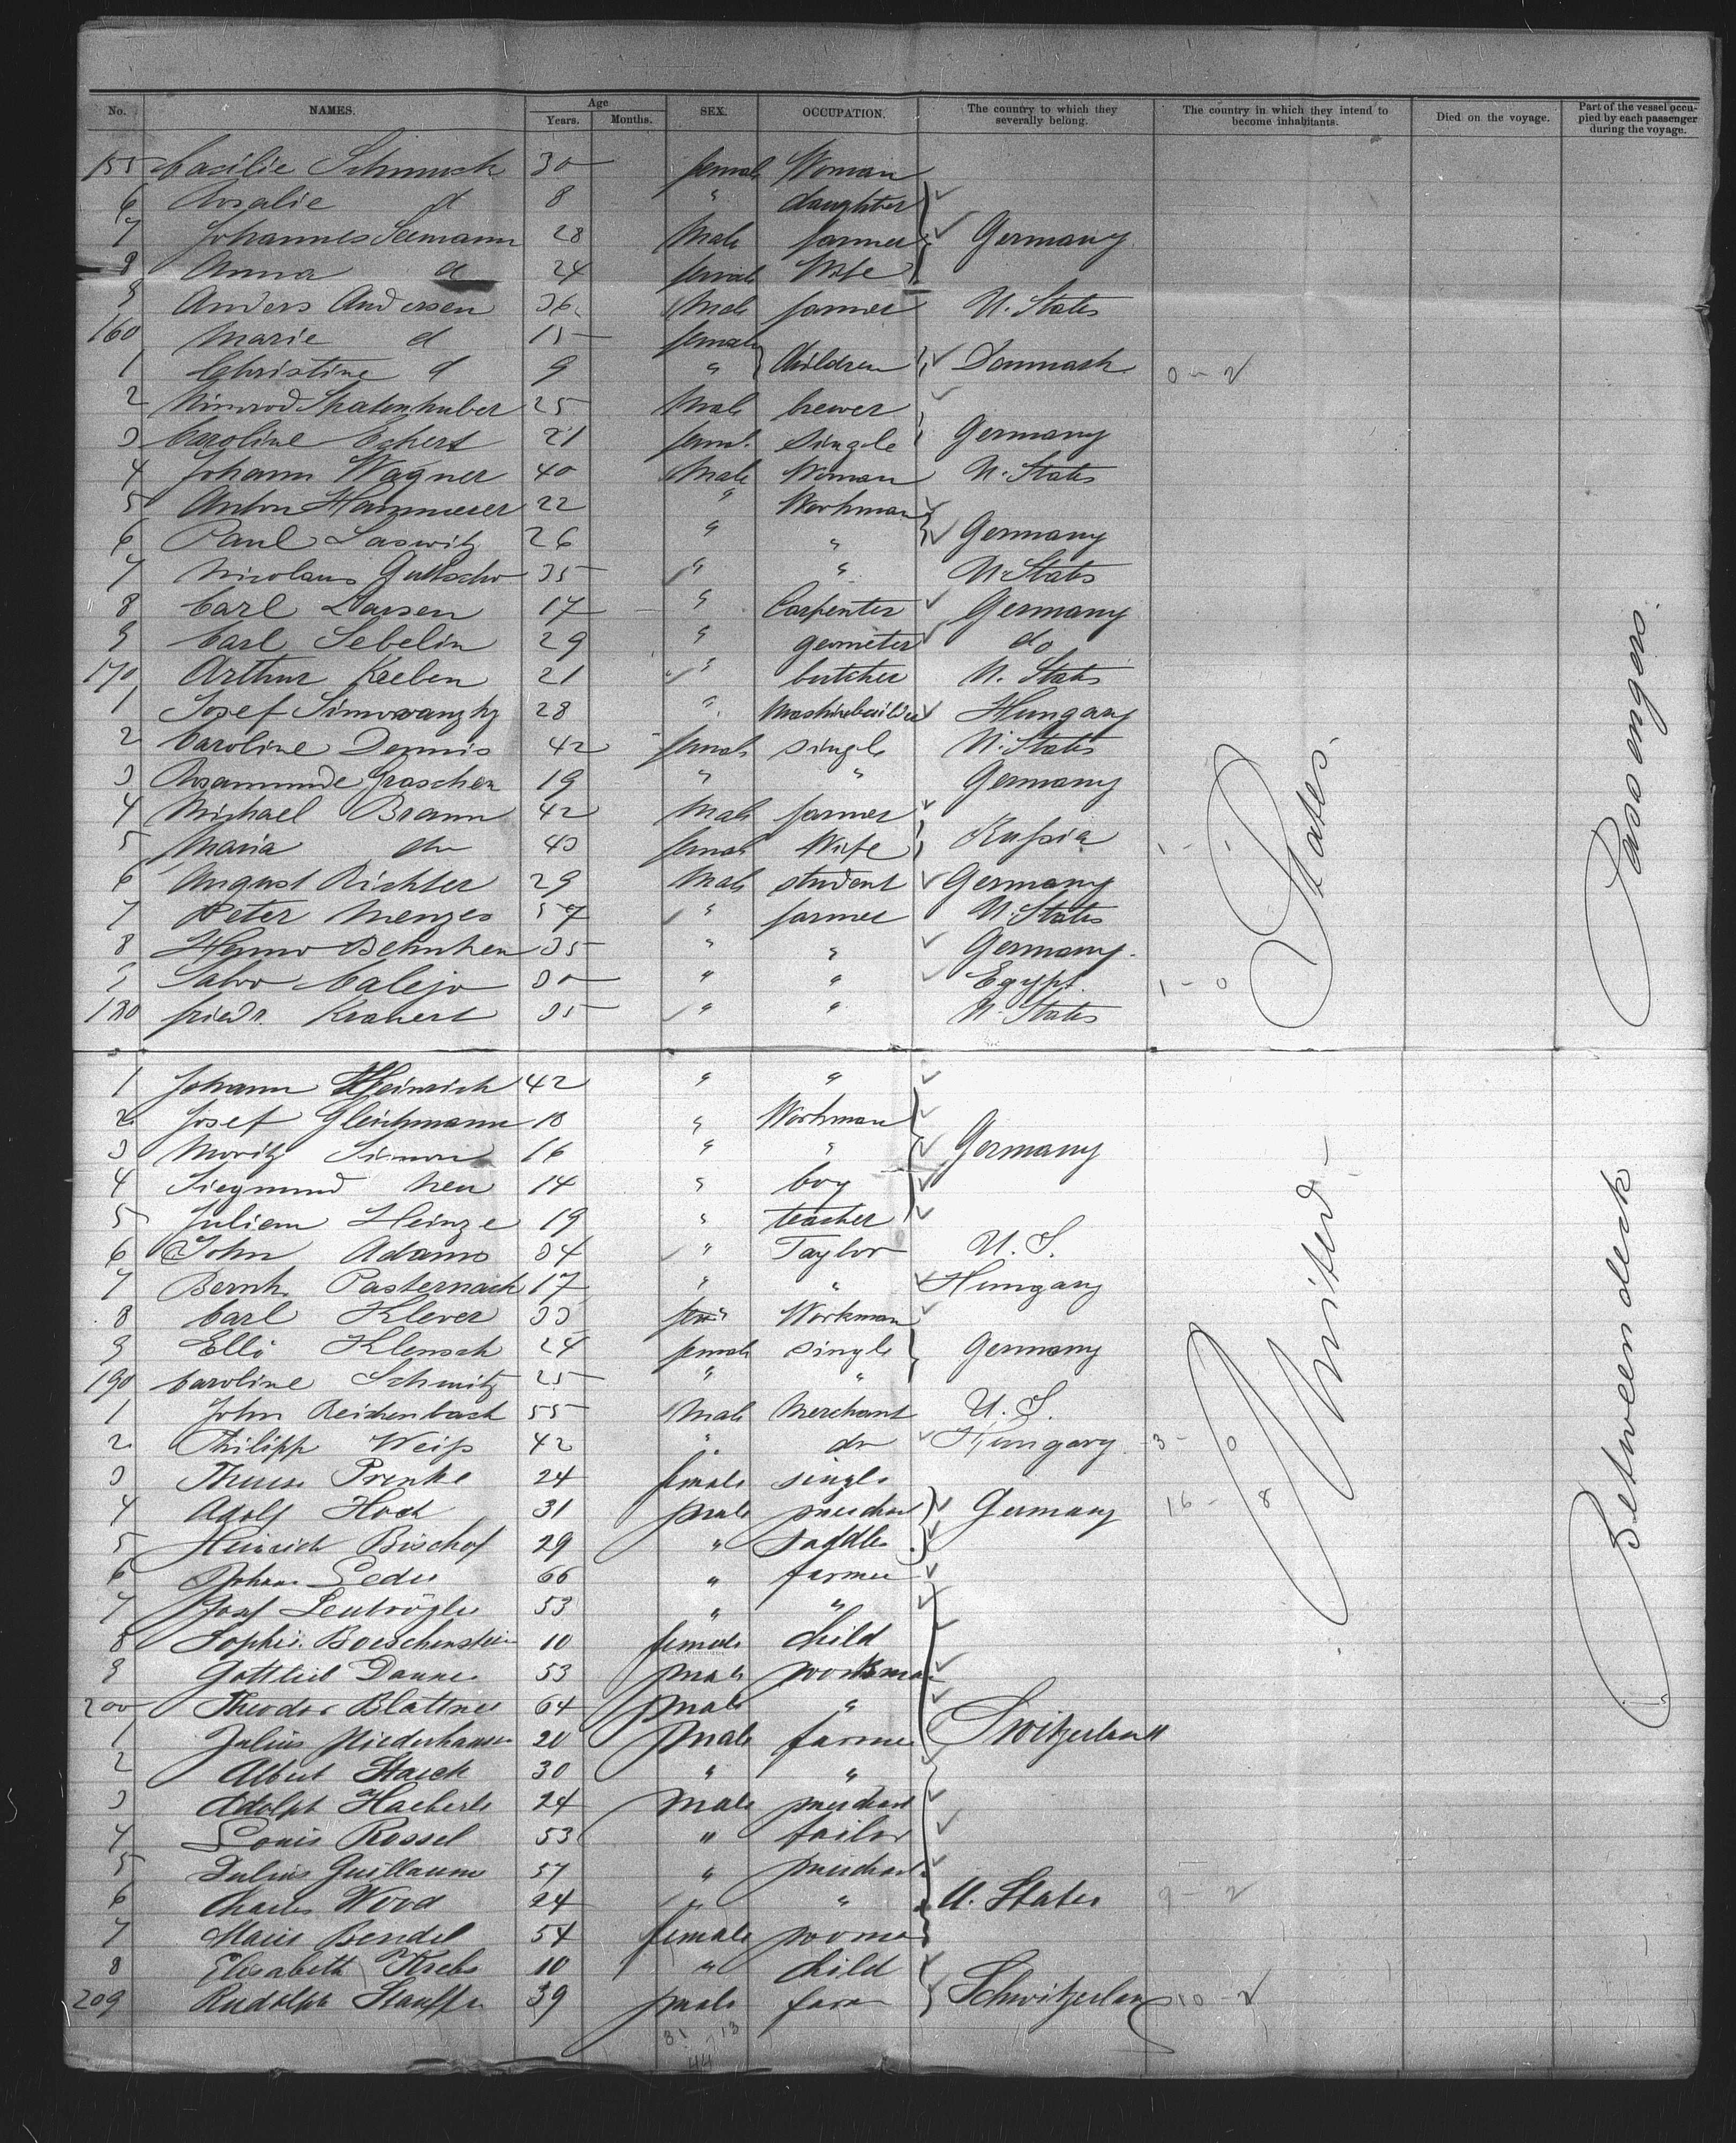 No. NAMES. Age Years. Months. SEX. OCCUPATION. The country to which they severally belong. The country in which they intend to become inhabitants. Died on the voyage. Part of the vessel occupied by each passenger during the voyage.
155 Cacilie Schmuck 30 female Woman
6 Rosalie d 8 " daughter
7 Johannes Seemann 28 Male farmer Germany
8 Anna d 24 female Wife
9 Anders Andersen 36 Male farmer U. States
160 Marie d 15 female
1 Christine d 9 " Children Danmark 0 - 2
2 Nimrod Spatenhuber 25 Male brewer
3 Caroline Eckert 21 femal. single Germany
4 Johann Wagner 40 Male Woman U. States
5 Anton Hammerer 22 " Workman
6 Paul Laswitz 26 " " Germany
7 Nicolaus 35 " " U. States
8 Carl Larsen 17 " Carpenter Germany
9 Carl Sebelin 29 " geometer do
170 Arthur Kreben 21 " butcher U. States
1 Josef 28 " Mashinebuilder Hungary
2 Caroline Dennis 42 female single U. States
3 Rosamunde Groschen 19 " " Germany
4 Michael Braun 42 Male farmer
5 Maria do 43 female Wife Russia 1 - 1
6 August Richter 29 Male student Germany
7 Peter Menges 57 " farmer U. States
8 Henno Behnken 35 " " Germany.
9 Salvo Calejo 30 " " Egypt. 1 - 0
180 friedr. Kranert 35 " " U. States
1 Johann Heinrich 42 " "
2 Josef Gleichmann 18 " Workman
3 Moritz Simon 16 " " Germany
4 Siegmund Neu 14 " boy
5 Julian Heinze 19 " teacher
6 John Adams 34 " Taylor U. S.
7 Bernh. Pasternack 17 " " Hungary
8 Carl Klever 33 " Workman
9 Elli Klensch 24 female single Germany
190 Caroline Schmitz 25 " "
1 John Reichenbach 55 Male Merchant U. S.
2 Philipp Weiss 42 " do Hungary 3 - 0
3 Therese Prenke 24 female single
4 Adolf Hoch 31 male merchant Germany 16 - 8
5 Heinrich Bischof 29 " saddler
6 Johann Leder 66 " farmer
7 Josef 53 " "
8 Sophie Boeschenstein 10 female child
9 Gottlieb Danner 53 male workman
200 Theodor Blattner 64 male "
1 Julius Niederhauser 20 male farmer Switzerland
2 Albert Starck 30 " "
3 Adolph Haeberli 24 male merchant
4 Louis Rossel 53 " tailor
5 Julius Guillaume 57 " merchant
6 Charles Wood 24 " " U. States 9 - 2
7 Marie Bendel 54 female woman
8 Elisabeth Krebs 10 " child
209 Rudolph Stauffer 39 male farmer Schwitzerland 10 - 2
31 13
44
United States.
Between deck Passengers.